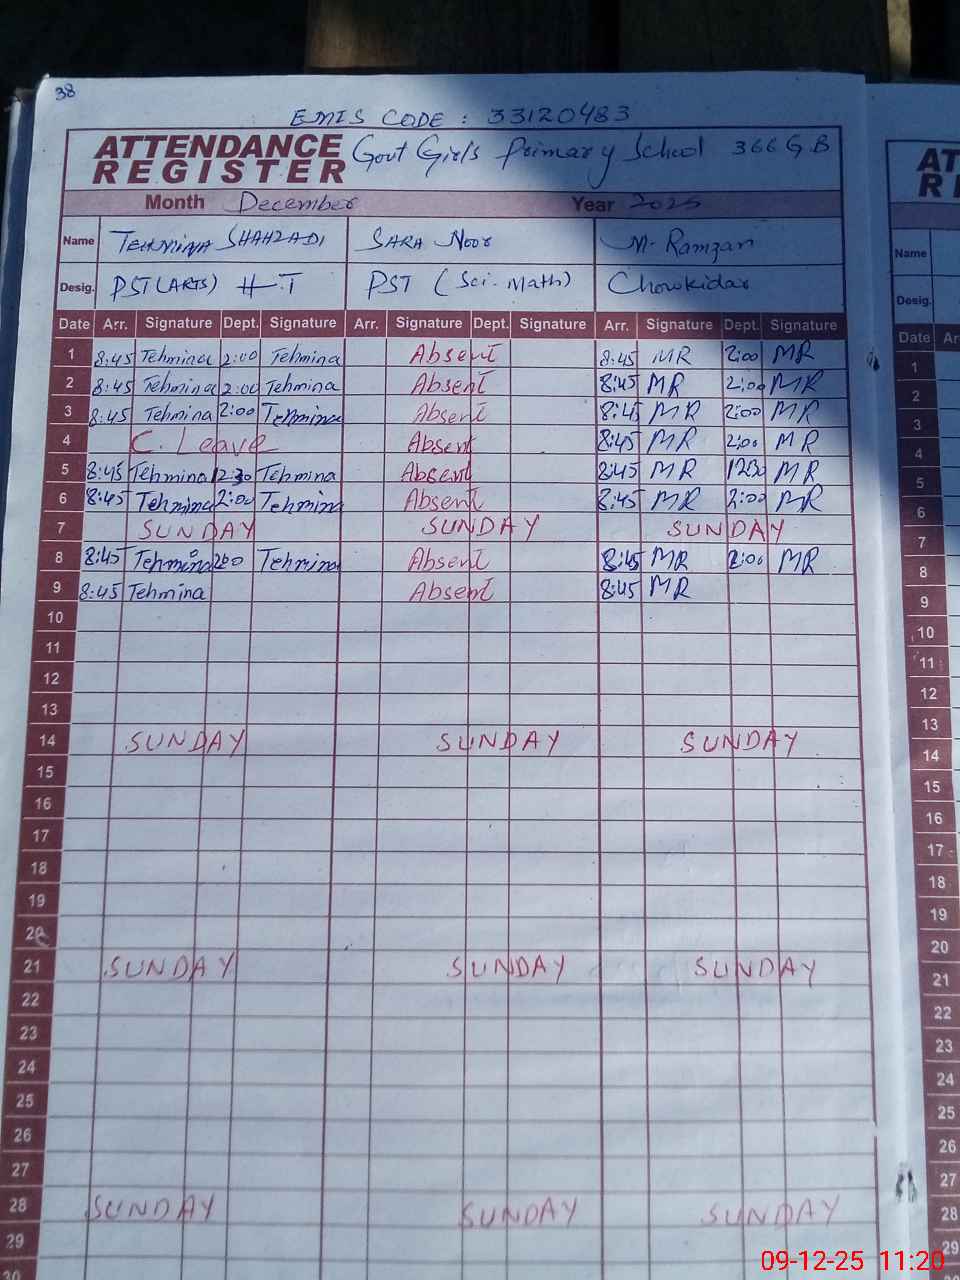 38
EMIS CODE : 33120483
ATTENDANCE REGISTER Govt Girls Primary School 366 G.B
Month December Year 2025
Name TEHMINA SHAHZADI SARA Noor M. Ramzan
Desig. PST (ARTS) H.T PST (Sci. Math) Chowkidar
Date Arr. Signature Dept. Signature Arr. Signature Dept. Signature Arr. Signature Dept. Signature
1 8:45 Tehmina 2:00 Tehmina Absent 8:45 MR 2:00 MR
2 8:45 Tehmina 2:00 Tehmina Absent 8:45 MR 2:00 MR
3 8:45 Tehmina 2:00 Tehmina Absent 8:45 MR 2:00 MR
4 C. Leave Absent 8:45 MR 2:00 MR
5 8:45 Tehmina 12:30 Tehmina Absent 8:45 MR 1230 MR
6 8:45 Tehmina 2:00 Tehmina Absent 8:45 MR 2:00 MR
7 SUNDAY SUNDAY SUNDAY
8 8:45 Tehmina 200 Tehmina Absent 8:45 MR 2:00 MR
9 8:45 Tehmina Absent 8:45 MR
10
11
12
13
14 SUNDAY SUNDAY SUNDAY
15
16
17
18
19
20
21 SUNDAY SUNDAY SUNDAY
22
23
24
25
26
27
28 SUNDAY SUNDAY SUNDAY
29
30
AT
R
Name
Desig.
Date Ar
1
2
3
4
5
6
7
8
9
10
11
12
13
14
15
16
17
18
19
20
21
22
23
24
25
26
27
28
29
09-12-25 11:20